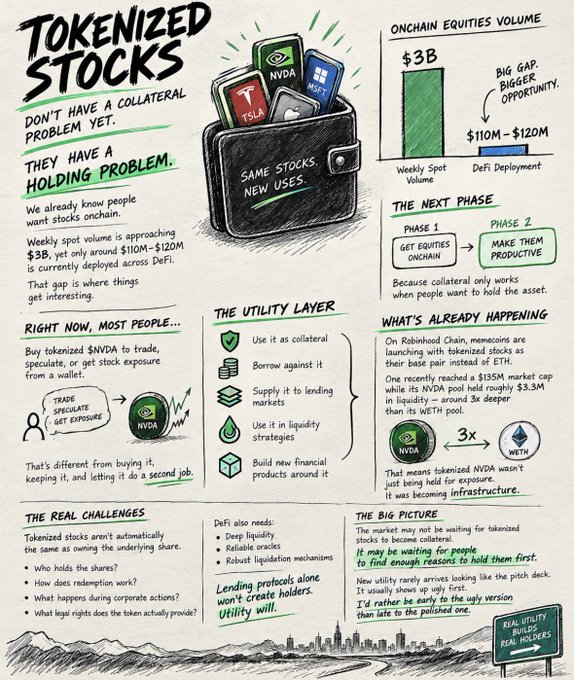 TOKENIZED
STOCKS
DON'T HAVE A COLLATERAL
PROBLEM YET.
THEY HAVE A
HOLDING PROBLEM.
We already know people
want stocks onchain.
Weekly spot volume is approaching
$3B, yet only around $110M–$120M
is currently deployed across DeFi.
That gap is where things
get interesting.
NVDA
MSFT
TSLA
SAME STOCKS.
NEW USES.
ONCHAIN EQUITIES VOLUME
$3B
BIG GAP.
BIGGER
OPPORTUNITY.
$110M–$120M
Weekly Spot
Volume
DeFi Deployment
THE NEXT PHASE
PHASE 1
GET EQUITIES
ONCHAIN
PHASE 2
MAKE THEM
PRODUCTIVE
Because collateral only works
when people want to hold the asset.
RIGHT NOW, MOST PEOPLE...
Buy tokenized $NVDA to trade,
speculate, or get stock exposure
from a wallet.
TRADE
SPECULATE
GET EXPOSURE
NVDA
That's different from buying it,
keeping it, and letting it do a second job.
THE UTILITY LAYER
Use it as collateral
Borrow against it
Supply it to lending
markets
Use it in liquidity
strategies
Build new financial
products around it
WHAT'S ALREADY HAPPENING
On Robinhood Chain, memecoins are
launching with tokenized stocks as
their base pair instead of ETH.
One recently reached a $135M market cap
while its NVDA pool held roughly $3.3M
in liquidity — around 3x deeper
than its WETH pool.
NVDA
3x
WETH
That means tokenized NVDA wasn't
just being held for exposure.
It was becoming infrastructure.
THE REAL CHALLENGES
Tokenized stocks aren't automatically
the same as owning the underlying share.
• Who holds the shares?
• How does redemption work?
• What happens during corporate actions?
• What legal rights does the token actually provide?
DeFi also needs:
• Deep liquidity
• Reliable oracles
• Robust liquidation mechanisms
Lending protocols alone
won't create holders.
Utility will.
THE BIG PICTURE
The market may not be waiting for tokenized
stocks to become collateral.
It may be waiting for people
to find enough reasons to hold them first.
New utility rarely arrives looking like the pitch deck.
It usually shows up ugly first.
I'd rather be early to the ugly version
than late to the polished one.
REAL UTILITY
BUILDS
REAL HOLDERS